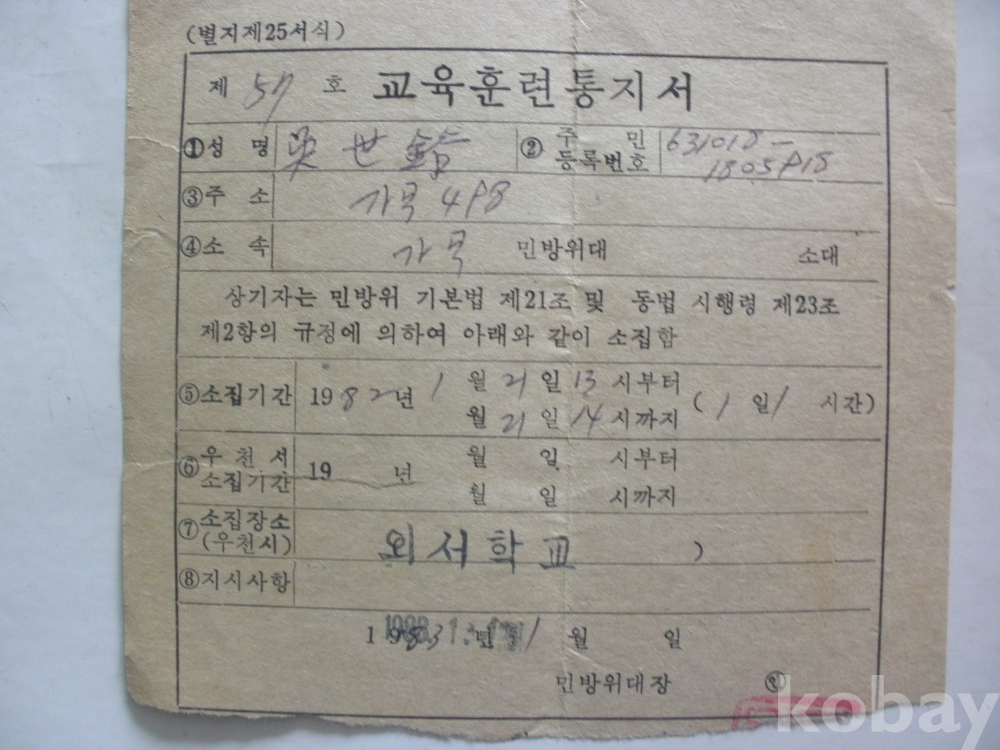 (별지제25서식)
제 57 호 교육훈련통지서
①성 명 吳世 ②주 민 등록번호 631018-
③주 소 가곡 498
④소 속 가곡 민방위대 소대
상기자는 민방위 기본법 제21조 및 동법 시행령 제23조
제2항의 규정에 의하여 아래와 같이 소집함
⑤소집기간 1982년 1월 21일 13시부터
월 21일 14시까지 (1일1시간)
⑥우천서 소집기간 19 년 월 일 시부터
월 일 시까지
⑦소집장소
(우천시) 외서학교 )
⑧지시사항
년 월 일
민방위대장 ㊞
kobay